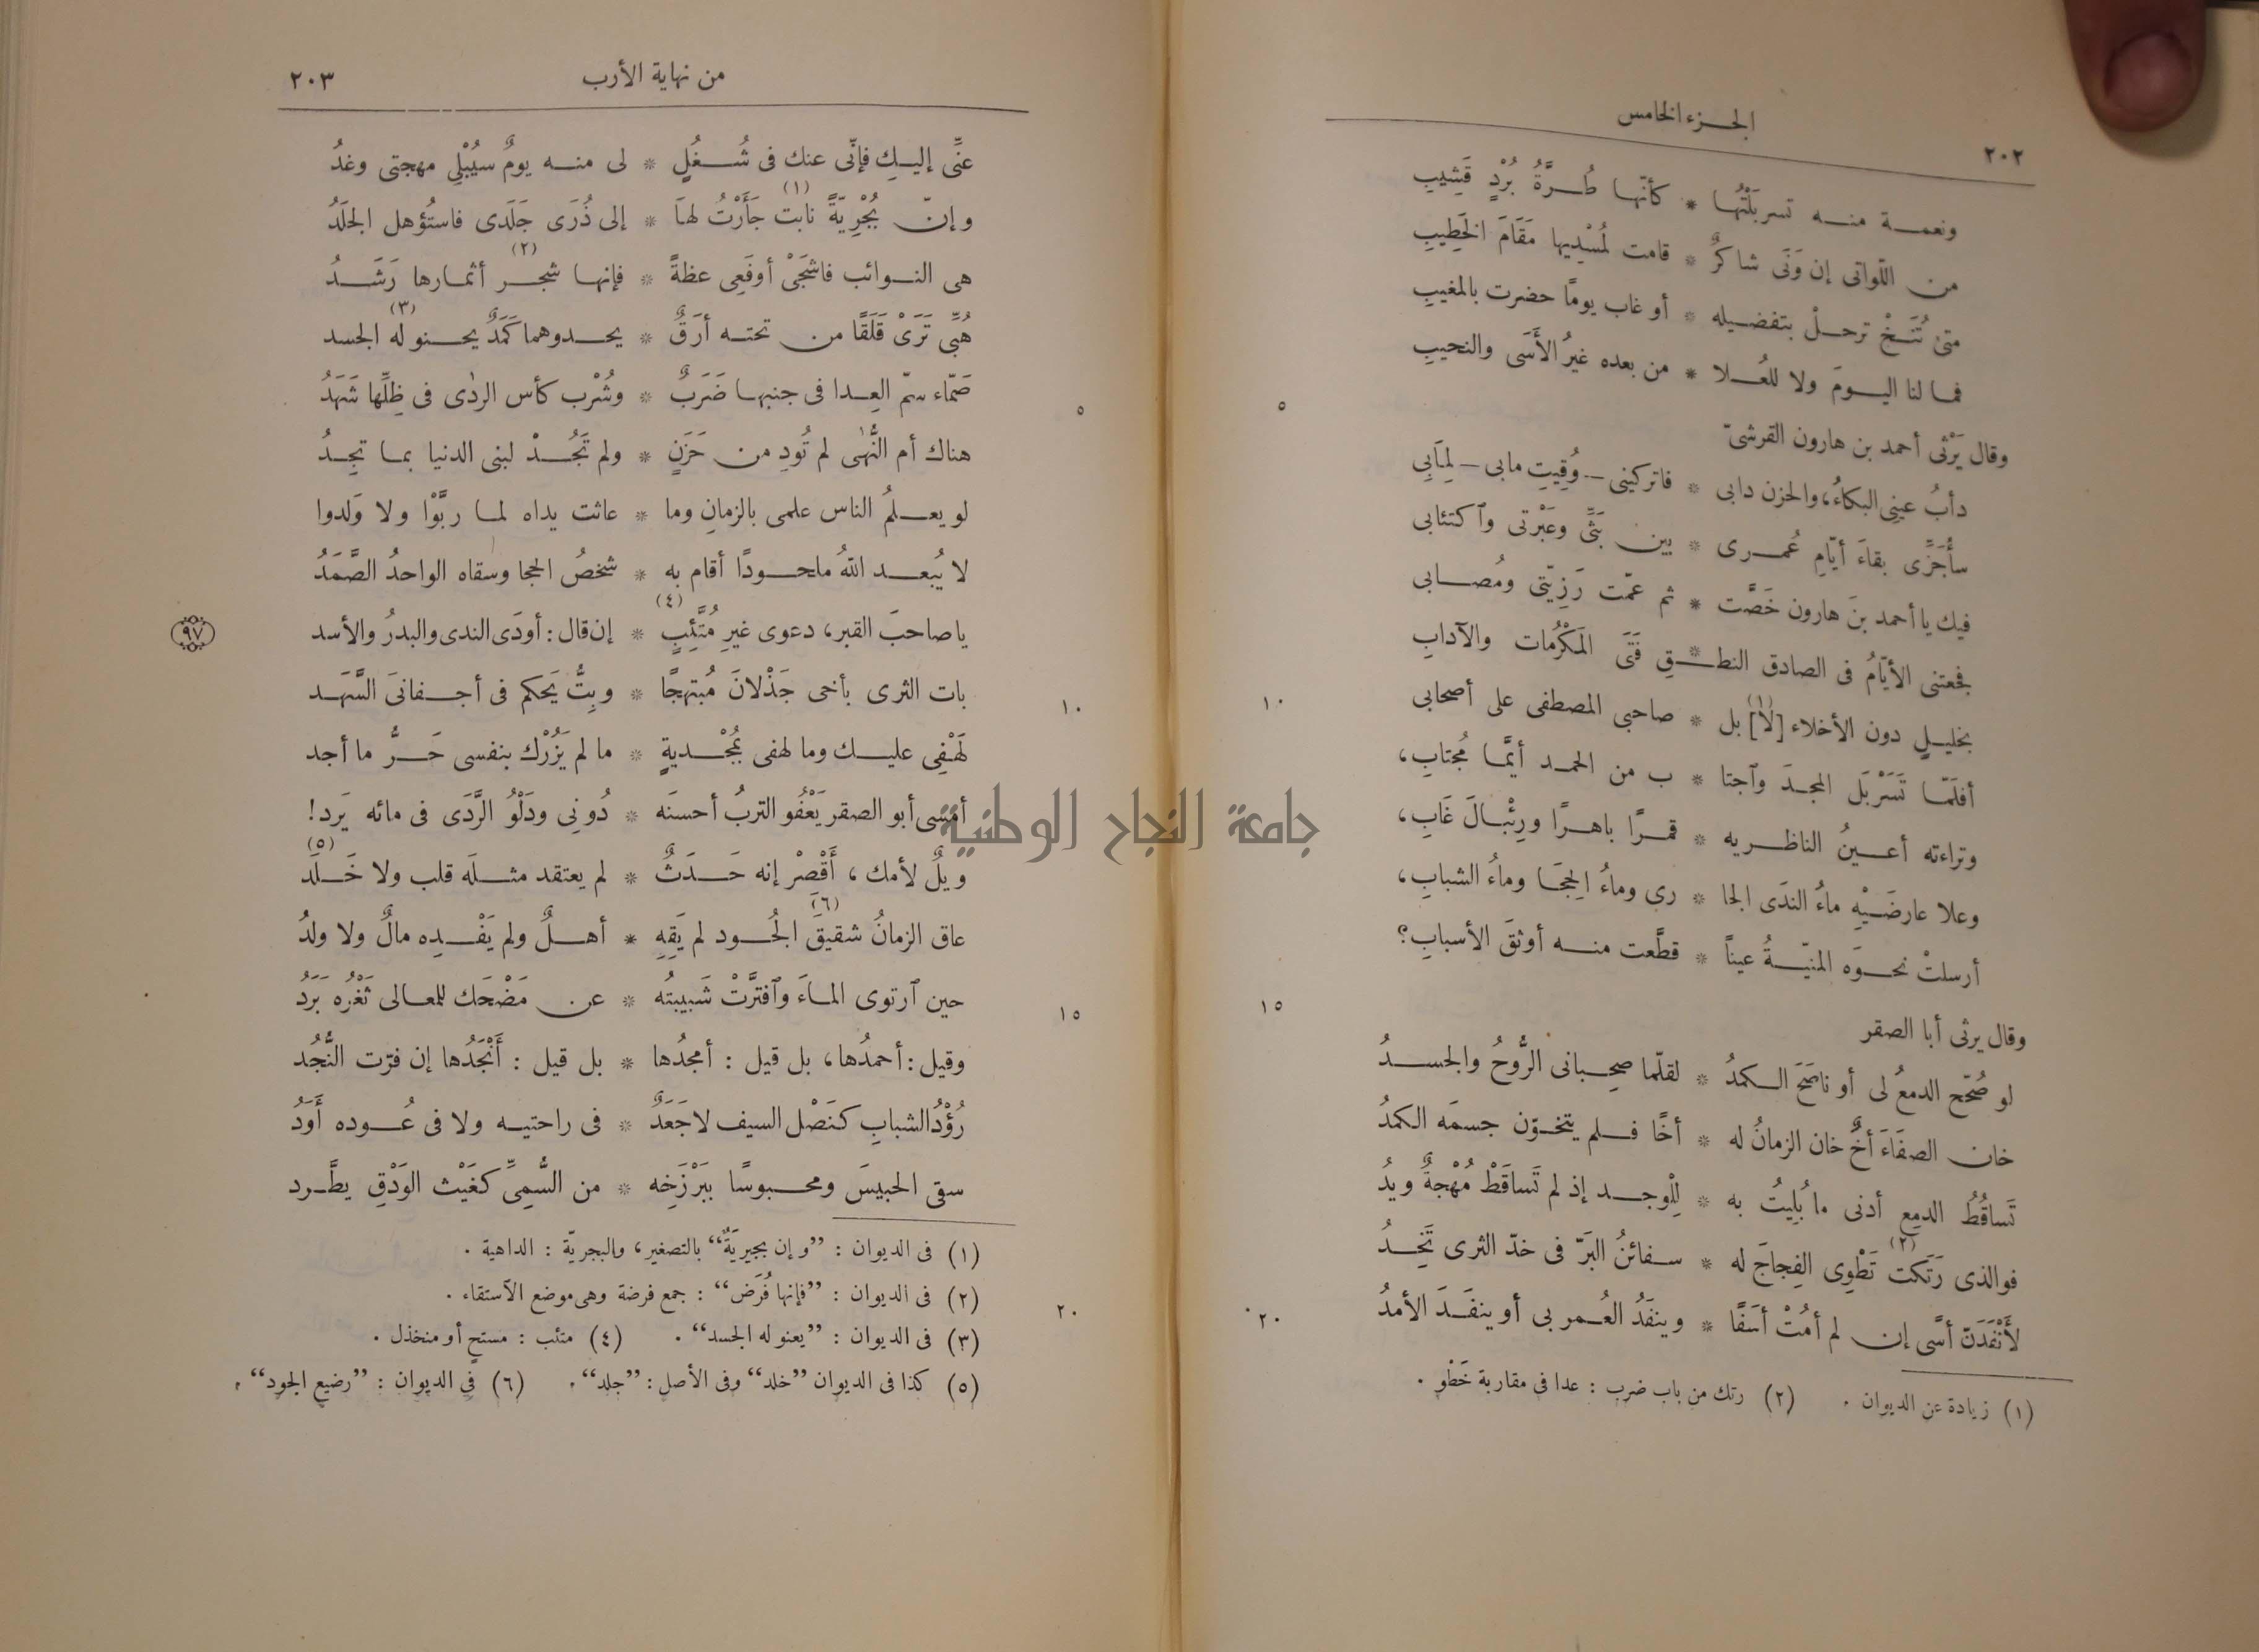 الجزء الخامس
٢٠٢
ونعمة منه تسربَلْتُها * كأنّها طُرَّةُ بُرْدٍ قَشِيبِ
من اللّواتى إن وَنَى شاكرٌ * قامت لمُسْدِيها مَقَامَ الخَطِيبِ
متى تُنَخْ ترحلْ بتفضيله * أو غاب يومًا حضرت بالمغيبِ
فما لنا اليومَ ولا للعُلا * من بعده غيرُ الأَسَى والنحيبِ
٥
وقال يَرْثى أحمد بن هارون القرشىّ
دأبُ عينِى البكاءُ، والحزن دابى * فاتركينى - وُقِيتِ مابى - لِمَابِى
سأُجَزَّى بقاءَ أيّامِ عُمرى * بين بَثِّى وعَبْرتى وٱكتئابى
فيك يا أحمد بنَ هارون خَصَّت * ثم عمّت رَزِيّتى ومُصابى
فجعتنى الأيّامُ فى الصادق النطـ * ـقِ فَتَى المَكْرُمات والآدابِ
بخليلٍ دون الأخلاء [لا](١) بل * صاحبى المصطفى على أصحابى
١٠
أفلَمّا تَسَرْبَل المجدَ وٱجتا * ب من الحمد أيَّما مُجتابِ،
وتراءته أعينُ الناظريه * قمرًا باهرًا ورِئْبالَ غَابِ،
وعلا عارضَيْهِ ماءُ الندَى الجا * رى وماءُ الحِجَا وماءُ الشبابِ،
أرسلتْ نحوَه المنيّةُ عيناً * قطَّعت منه أوثقَ الأسبابِ؟
١٥
وقال يرثى أبا الصقر
لو صُحّح الدمعُ لى أو ناصَحَ الكمدُ * لقلّما صحِبانى الرُّوحُ والجسدُ
خان الصفَاءَ أخٌ خان الزمانُ له * أخًا فلم يتخوّن جسمَه الكمدُ
تَساقُطُ الدمِع أدنى ما بُلِيتُ به * لِلْوجد إذ لم تَساقَطْ مُهْجةٌ ويدُ
فوالذى رَتَكت(٢) تَطْوِى الفِجاجَ له * سفائنُ البَرّ فى خدّ الثرى تَخِدُ
لأَنْفَدَنّ أسًى إن لم أمُتْ أسَفًا * وينفَدُ العُمر بى أو ينفَدَ الأمدُ
٢٠
(١) زيادة عن الديوان . (٢) رتك من باب ضرب : عدا فى مقاربة خَطْوٍ .
من نهاية الأرب
٢٠٣
عنِّى إليكِ فإنّى عنك فى شُغُلٍ * لى منه يومٌ سيُبْلِى مهجتى وغدُ
وإنّ بُجْرِيّةً(١) نابت جَأَرْتُ لها * إلى ذُرَى جَلَدى فاستُؤهل الجَلَدُ
هى النوائب فاشجَىْ أوفَعِى عظةً * فإنها شجر(٢) أثمارها رَشَدُ
هُبِّى تَرَىْ قَلَقًا من تحته أرَقٌ * يحدوهما كَمَدٌ يحنو له(٣) الجسد
صَمّاء سمّ العِدا فى جنبها ضَرَبٌ * وشُرْب كأس الردٰى فى ظِلِّها شَهَدُ
٥
هناك أم النُّهٰى لم تُودِ من حَزَنٍ * ولم تَجُدْ لبنى الدنيا بما تجِدُ
لو يعلمُ الناس علمى بالزمانِ وما * عاثت يداه لما ربَّوْا ولا وَلدوا
لا يُبعد اللهُ ملحودًا أقام به * شخصُ الحجا وسقاه الواحدُ الصَّمَدُ
يا صاحبَ القبر، دعوى غيرِ مُتَّئِبٍ(٤) * إن قال : أودَى الندى والبدرُ والأسد
﴿٩٧﴾
بات الثرى بأخى جَذْلانَ مُبتهجًا * وبِتُّ يَحكم فى أجفانىَ السَّهَد
١٠
لَهْفِى عليك وما لهفى بمُجْديةٍ * ما لم يَزُرْك بنفسى حَرُّ ما أجد
أمسى أبو الصقر يَعْفُو التربُ أحسنَه * دُونِى ودَلْوُ الرَّدَى فى مائه يَرِد!
ويلٌ لأمك، أَقْصِرْ إنه حَدَثٌ * لم يعتقد مثلَه قلب ولا خَلَد(٥)
عاق الزمانُ شقيقَ(٦) الجُود لم يَقِهِ * أهلٌ ولم يَفْدِه مالٌ ولا ولدُ
حين ٱرتوى الماءَ وٱفترَّتْ شَبيبتُه * عن مَضْحَك للمعالى ثَغْرُه بَرَدُ
١٥
وقيل : أحمدُها، بل قيل : أمجدُها * بل قيل : أَنْجَدُها إن فرّت النُّجُد
رُؤْدُ الشبابِ كنَصْل السيف لا جَعَدٌ * فى راحتيه ولا فى عُوده أَوَدُ
سقى الحبيسَ ومحبوسًا ببَرْزَخِه * من السُّمِىِّ كغَيْث الوَدْقِ يطَّرد
(١) فى الديوان : ”وإن بجيريَةٌ“ بالتصغير، والبجريّة : الداهية .
(٢) فى الديوان : ”فإنها فُرَض“ : جمع فرضة وهى موضع الآستقاء .
٢٠
(٣) فى الديوان : ”يعنو له الجسد“ . (٤) متئب : مستحٍ أو منخذل .
(٥) كذا فى الديوان ”خلد“ وفى الأصل : ”جلد“ . (٦) فى الديوان : ”رضيع الجود“ .
جامعة النجاح الوطنية